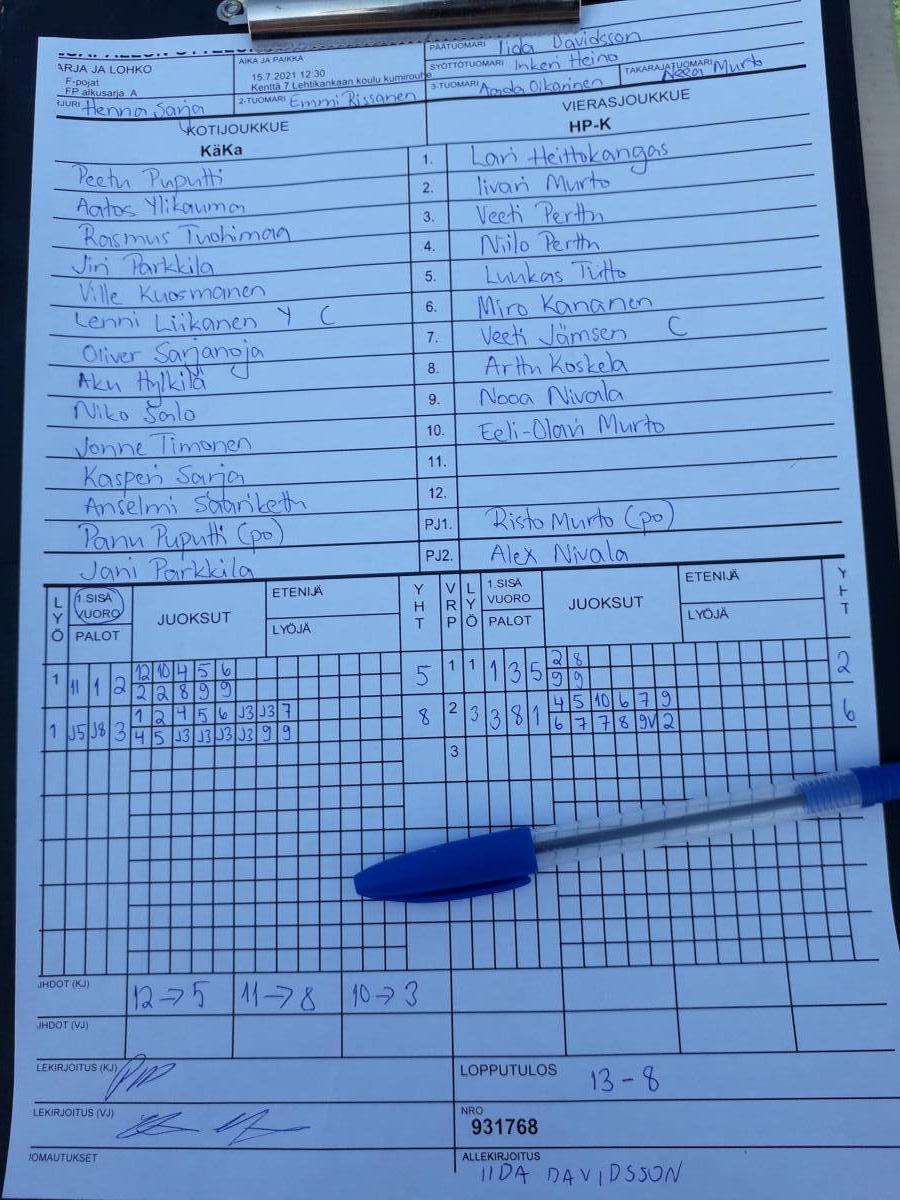 PÄÄTUOMARI Iida Davidsson
ARJA JA LOHKO
F-pojat
FP alkusarja A
AIKA JA PAIKKA
15.7.2021 12:30
Kenttä 7 Lehtikankaan koulu kumirouhe
SYÖTTÖTUOMARI Inkeri Heino
JURI Henna Sarja
2-TUOMARI Emmi Rissanen
3-TUOMARI Aada Oikarinen
TAKARAJATUOMARI Neea Murto
KOTIJOUKKUE VIERASJOUKKUE
KäKa HP-K
Peetu Puputti 1. Lari Heittokangas
Aatos Ylikauma 2. Iivari Murto
Rasmus Tuohimaa 3. Veeti Perttu
Jiri Parkkila 4. Niilo Perttu
Ville Kuosmanen 5. Luukas Tutto
Lenni Liikanen Y C 6. Miro Kananen
Oliver Sarjanoja 7. Veeti Jämsen C
Aku Hylkilä 8. Arttu Koskela
Niko Salo 9. Nooa Nivala
Jonne Timonen 10. Eeli-Olavi Murto
Kasperi Sarja 11.
Anselmi Saariketh 12.
Panu Puputti (po) PJ1. Risto Murto (po)
Jani Parkkila PJ2. Alex Nivala
LYÖ 1.SISÄ VUORO PALOT JUOKSUT ETENIJÄ LYÖJÄ YHT VRP LYÖ 1.SISÄ VUORO PALOT JUOKSUT ETENIJÄ LYÖJÄ YHT
1 11 1 2 12 10 4 5 6 5 1 1 1 3 5 2 8 2
2 2 8 9 9 9 9
1 J5 J8 3 1 2 4 5 6 J3 J3 7 8 2 3 3 8 1 4 5 10 6 7 9 6
4 5 J3 J3 J3 J3 9 9 6 7 7 8 9V 2
3
JHDOT (KJ) 12→5 11→8 10→3
JHDOT (VJ)
LEKIRJOITUS (KJ) LOPPUTULOS 13-8
LEKIRJOITUS (VJ) NRO
931768
IOMAUTUKSET ALLEKIRJOITUS
IIDA DAVIDSSON